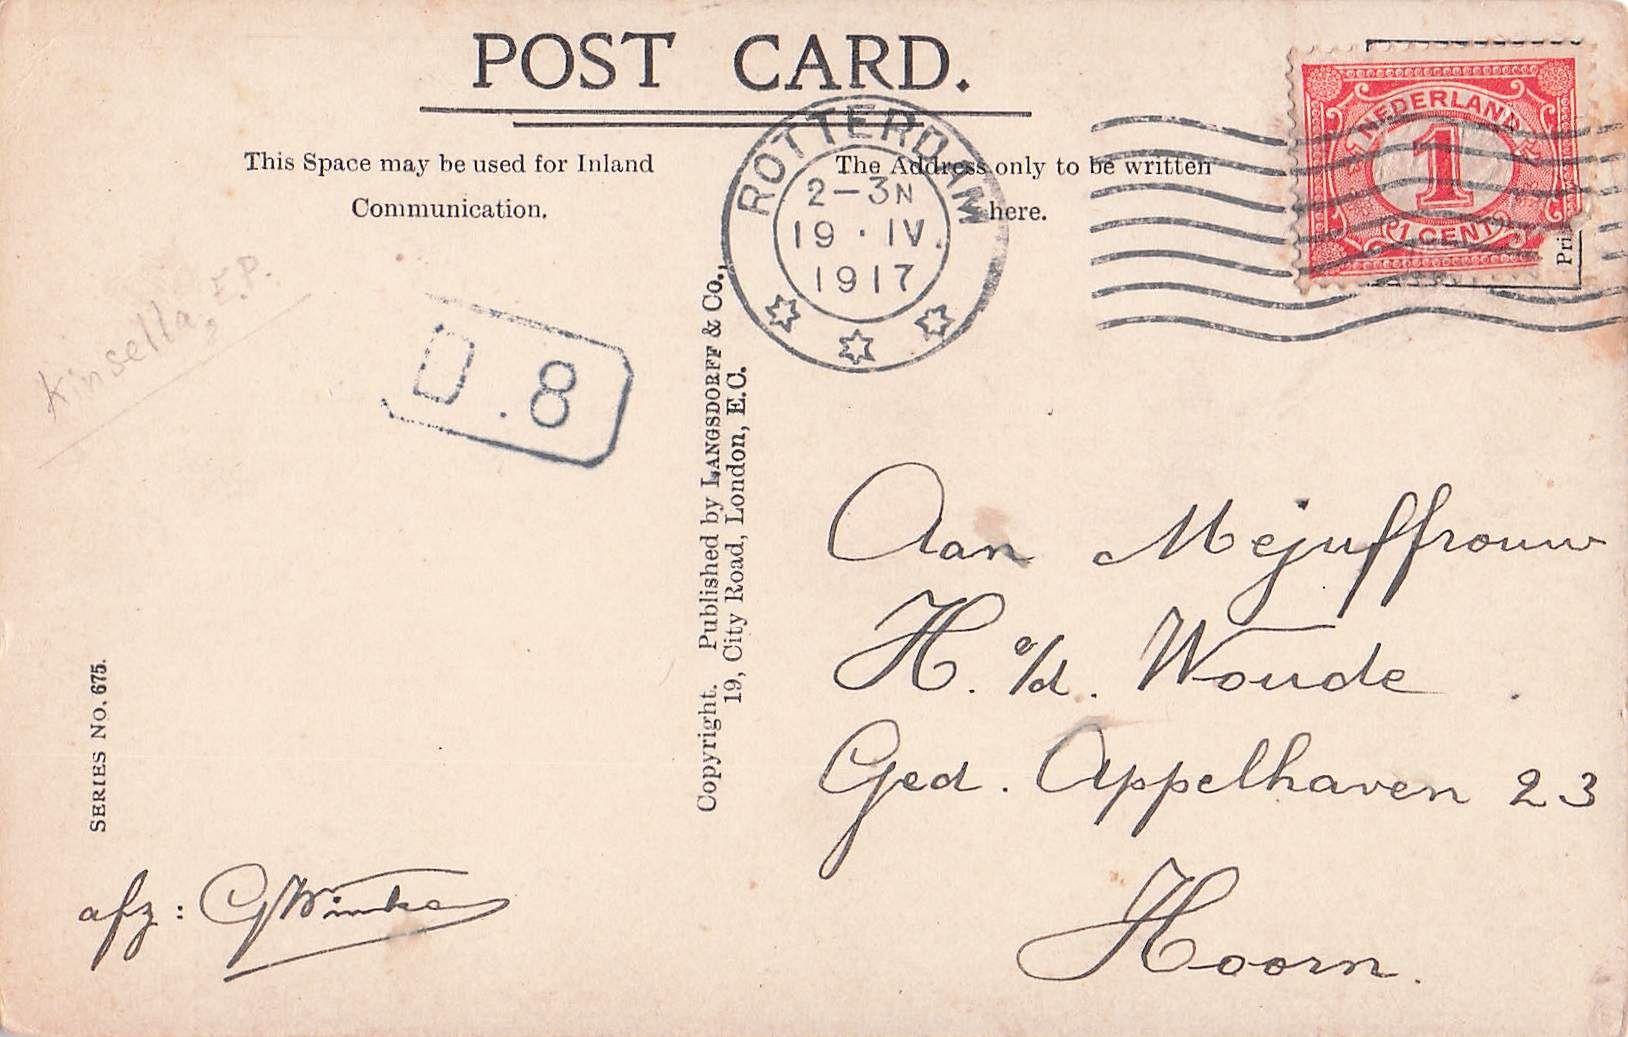 POST CARD.
This Space may be used for Inland
Communication.
The Address only to be written
here.
ROTTERDAM
2-3N
19 · IV.
1917
NEDERLAND
1
1 CENT
Pri
Kinsella, E.P.
.8
Copyright. Published by LANGSDORFF & Co.,
19, City Road, London, E.C.
SERIES NO. 675.
Aan Mejuffrouw
H. v/d. Woude
Ged. Appelhaven 23
Hoorn.
afz: